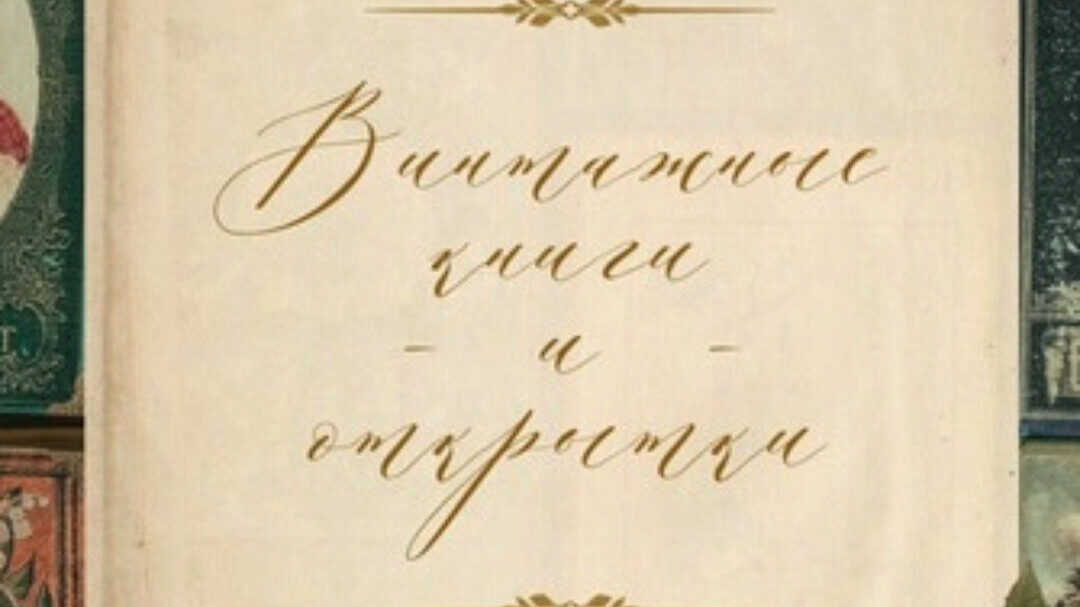 Винтажные
книги
- и -
открытки